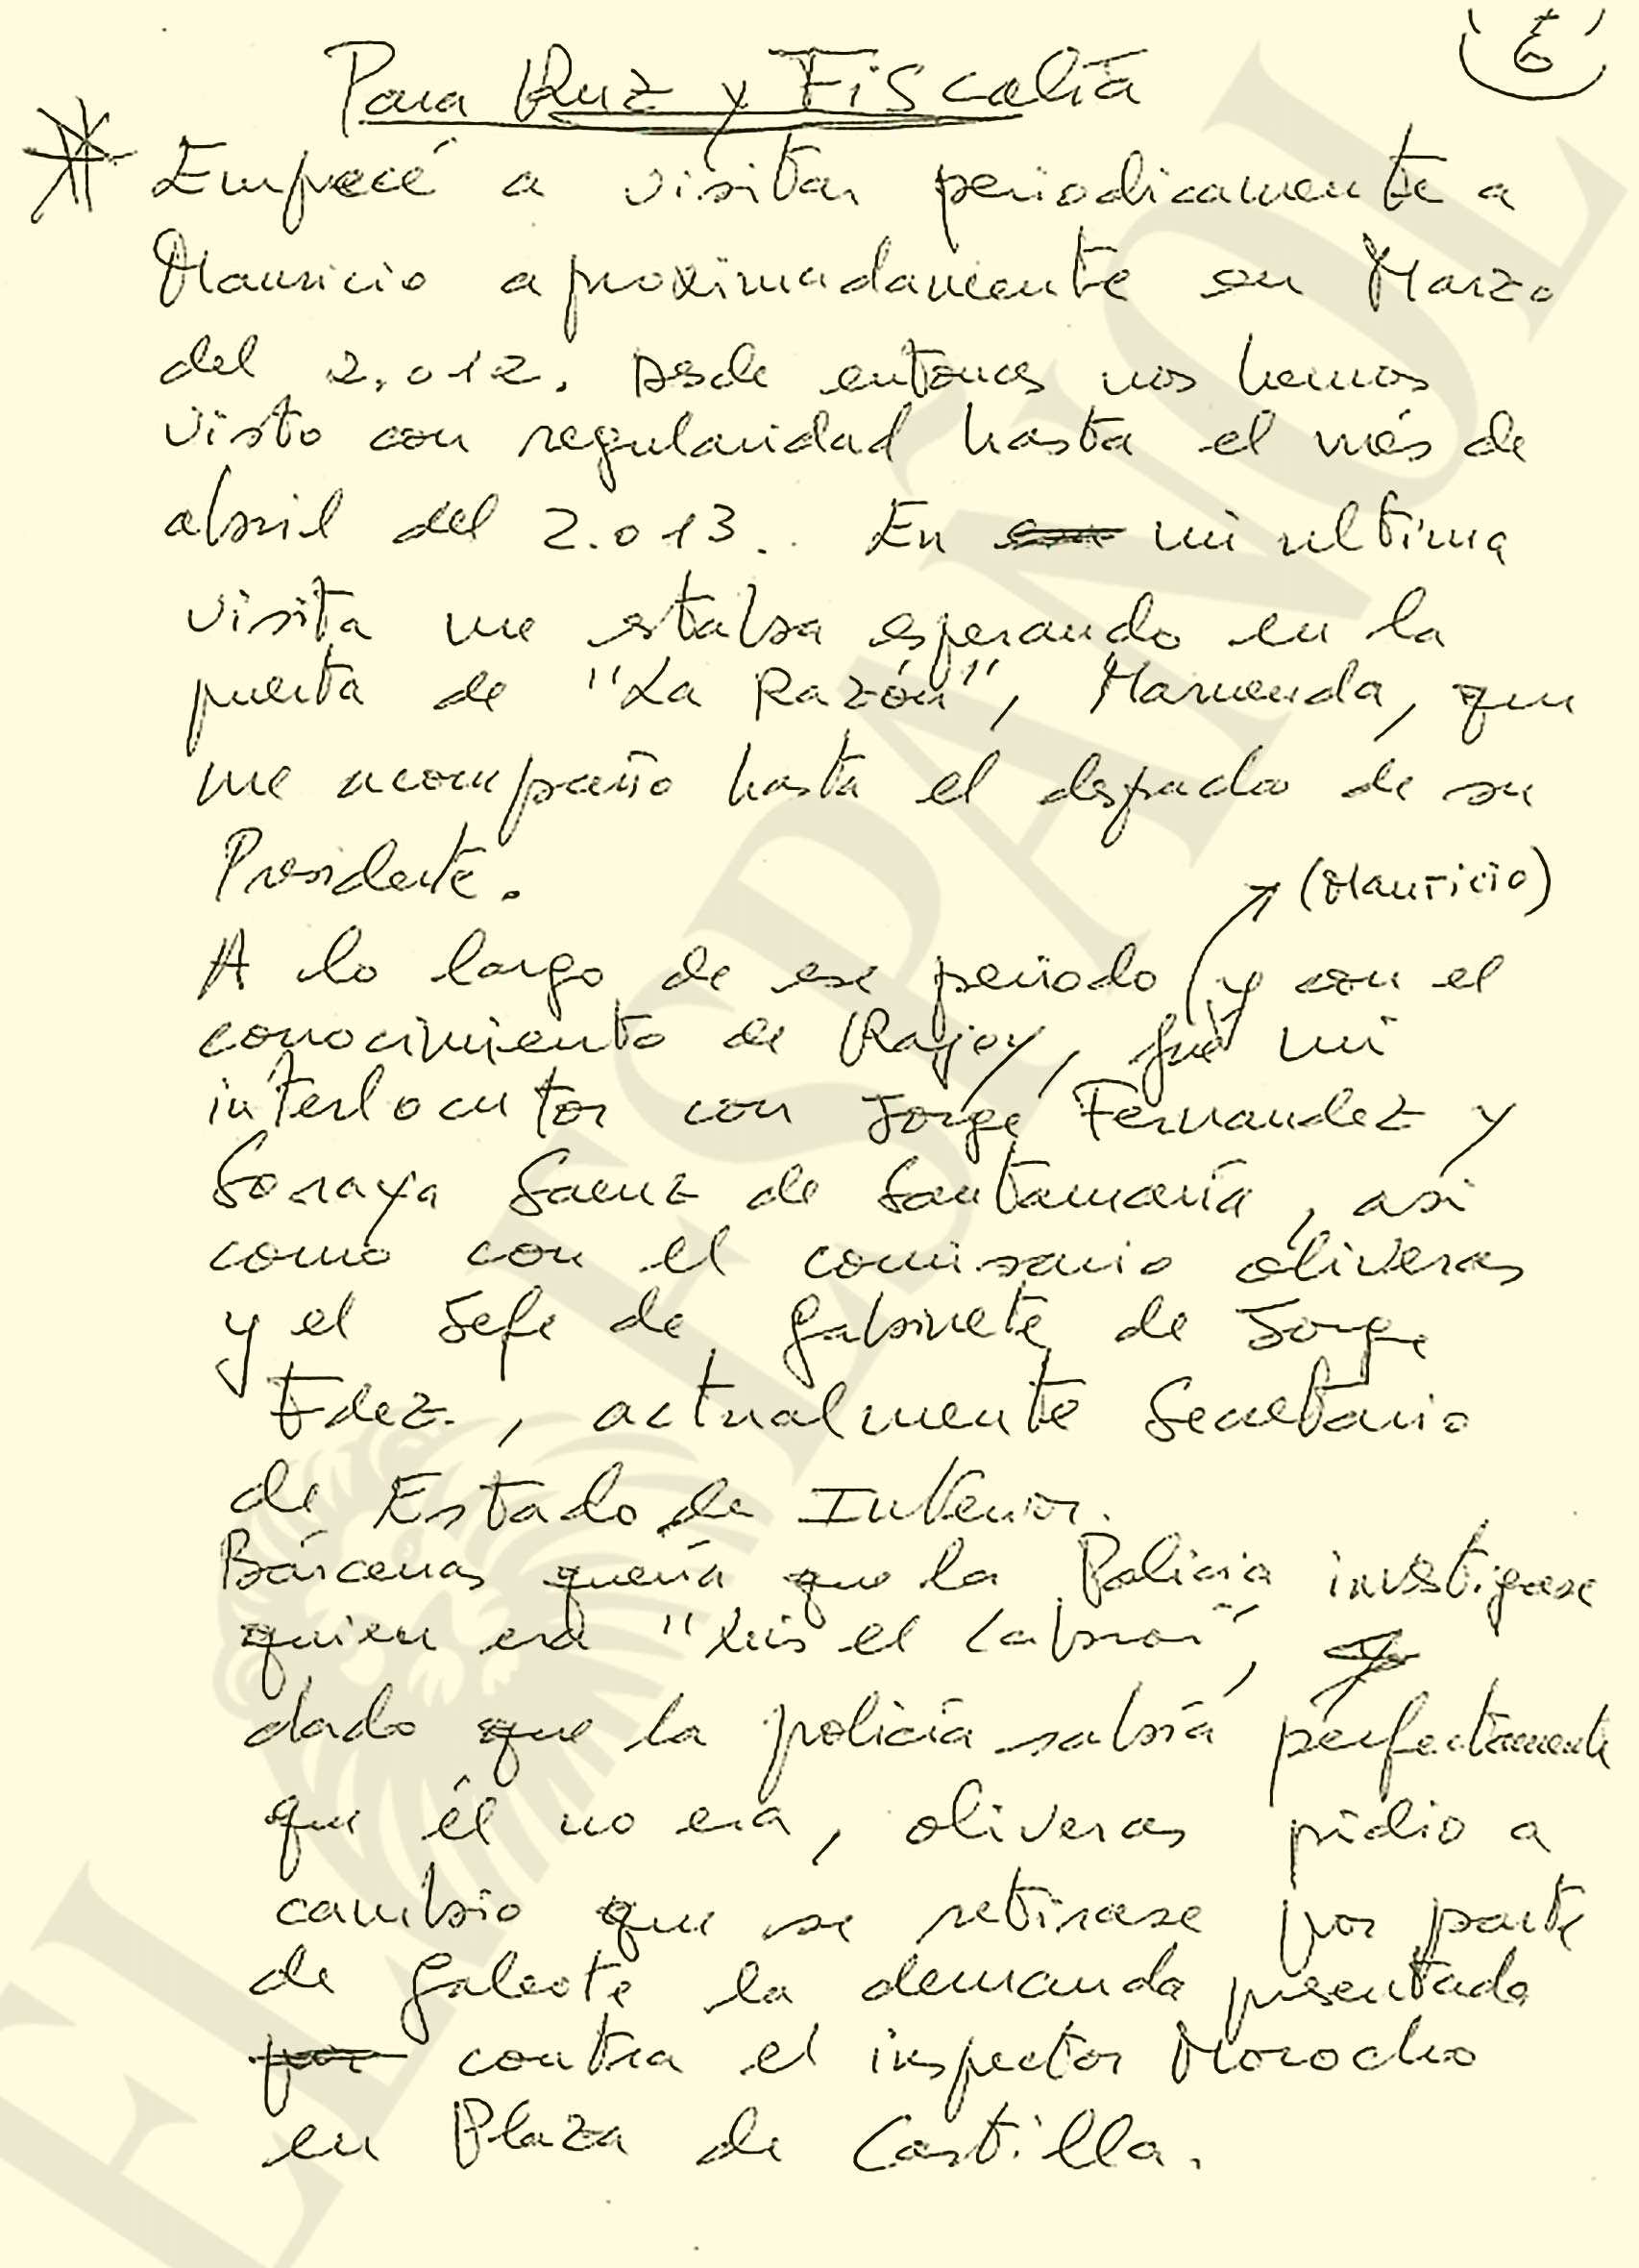 6
Para Ruz y Fiscalía
* Empecé a visitar periodicamente a
Mauricio aproximadamente en Marzo
del 2.012. Desde entonces nos hemos
visto con regularidad hasta el més de
abril del 2.013.. En mi ultima
visita me estaba esperando en la
puerta de "La Razón", Maruenda, que
me acompaño hasta el despacho de su
Presidente.
(Mauricio)
A lo largo de ese periodo y con el
conocimiento de Rajoy, fué mi
interlocutor con Jorge Fernandez y
Soraya Saenz de Santamaría, asi
como con el comisario oliveras
y el Jefe de Gabinete de Jorge
Fdez., actualmente Secretario
de Estado de Interior.
Bárcenas quería que la Policia investigase
quien era "Luis el Cabron",
dado que la policía sabía perfectamente
que él no era, oliveras pidio a
cambio que se retirase por parte
de Galeote la demanda presentada
por contra el inspector Morocho
en Plaza de Castilla.
EL ESPAÑOL